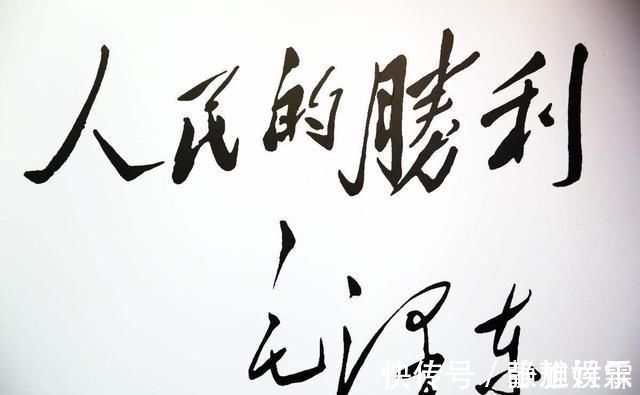 人民的勝利
毛泽东
快传号 /